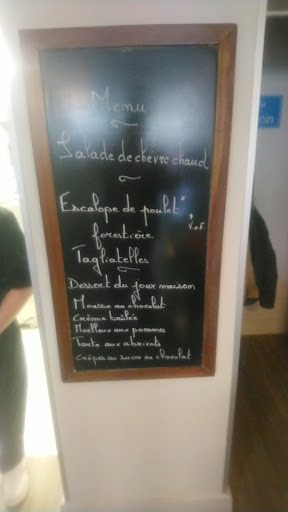 Menu
Salade de chèvre chaud
Escalope de poulet*
* V.O.F.
forestière
Tagliatelles
Dessert du jour maison
Mousse au chocolat
Crème brûlée
Moelleux aux pommes
Tarte aux abricots
Crêpes au sucre ou chocolat